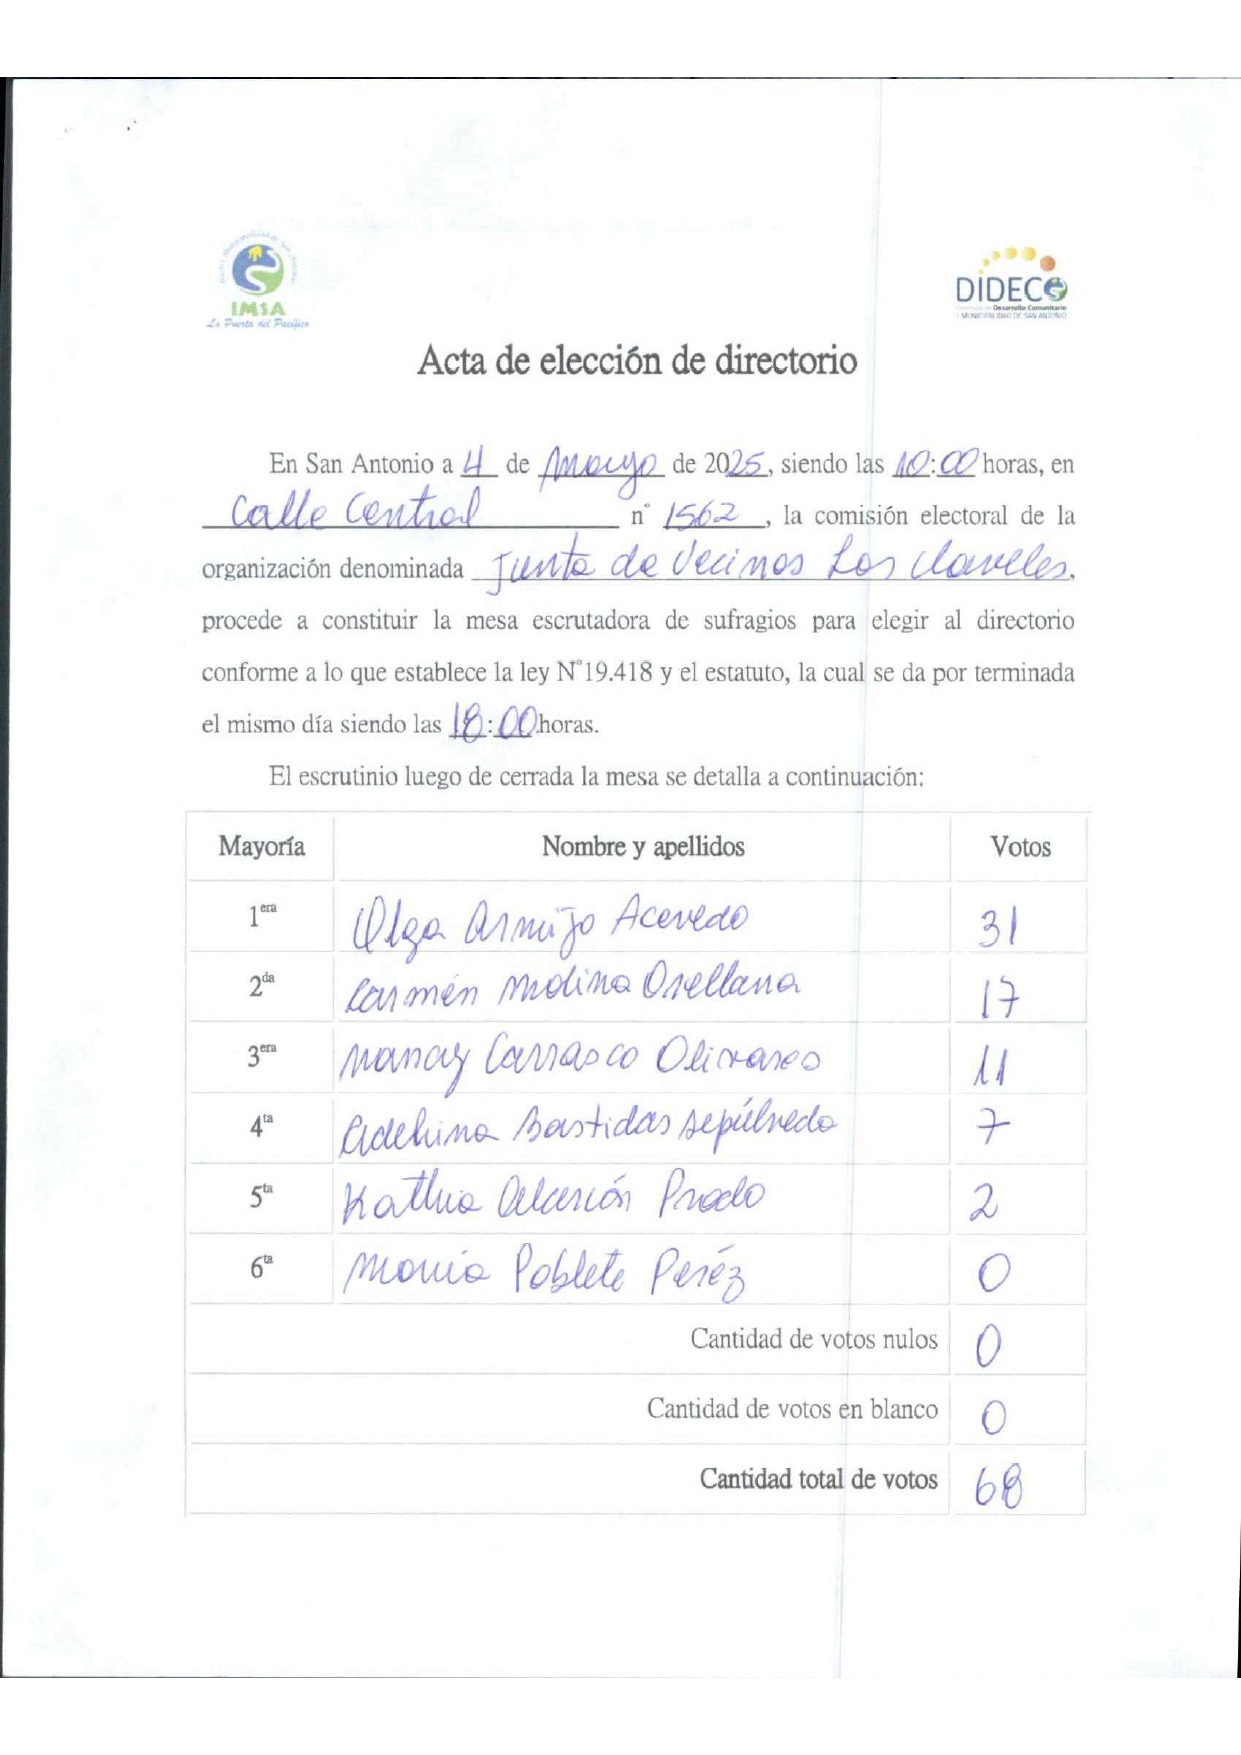 IMSA
La Puerta del Pacífico
DIDECO
Desarrollo Comunitario
I. MUNICIPALIDAD DE SAN ANTONIO
Acta de elección de directorio
En San Antonio a 4 de Mayo de 2025, siendo las 10:00 horas, en
Calle Central n° 1562, la comisión electoral de la
organización denominada Junta de Vecinos Los Claveles,
procede a constituir la mesa escrutadora de sufragios para elegir al directorio
conforme a lo que establece la ley N°19.418 y el estatuto, la cual se da por terminada
el mismo día siendo las 18:00 horas.
El escrutinio luego de cerrada la mesa se detalla a continuación:
Mayoría Nombre y apellidos Votos
1era Olga Armijo Acevedo 31
2da Carmén Molina Orellana 17
3era Nancy Carrasco Olivares 11
4ta Adelina Bastidas Sepúlveda 7
5ta Kathia Alarcón Prado 2
6ta María Poblete Peréz 0
Cantidad de votos nulos 0
Cantidad de votos en blanco 0
Cantidad total de votos 68